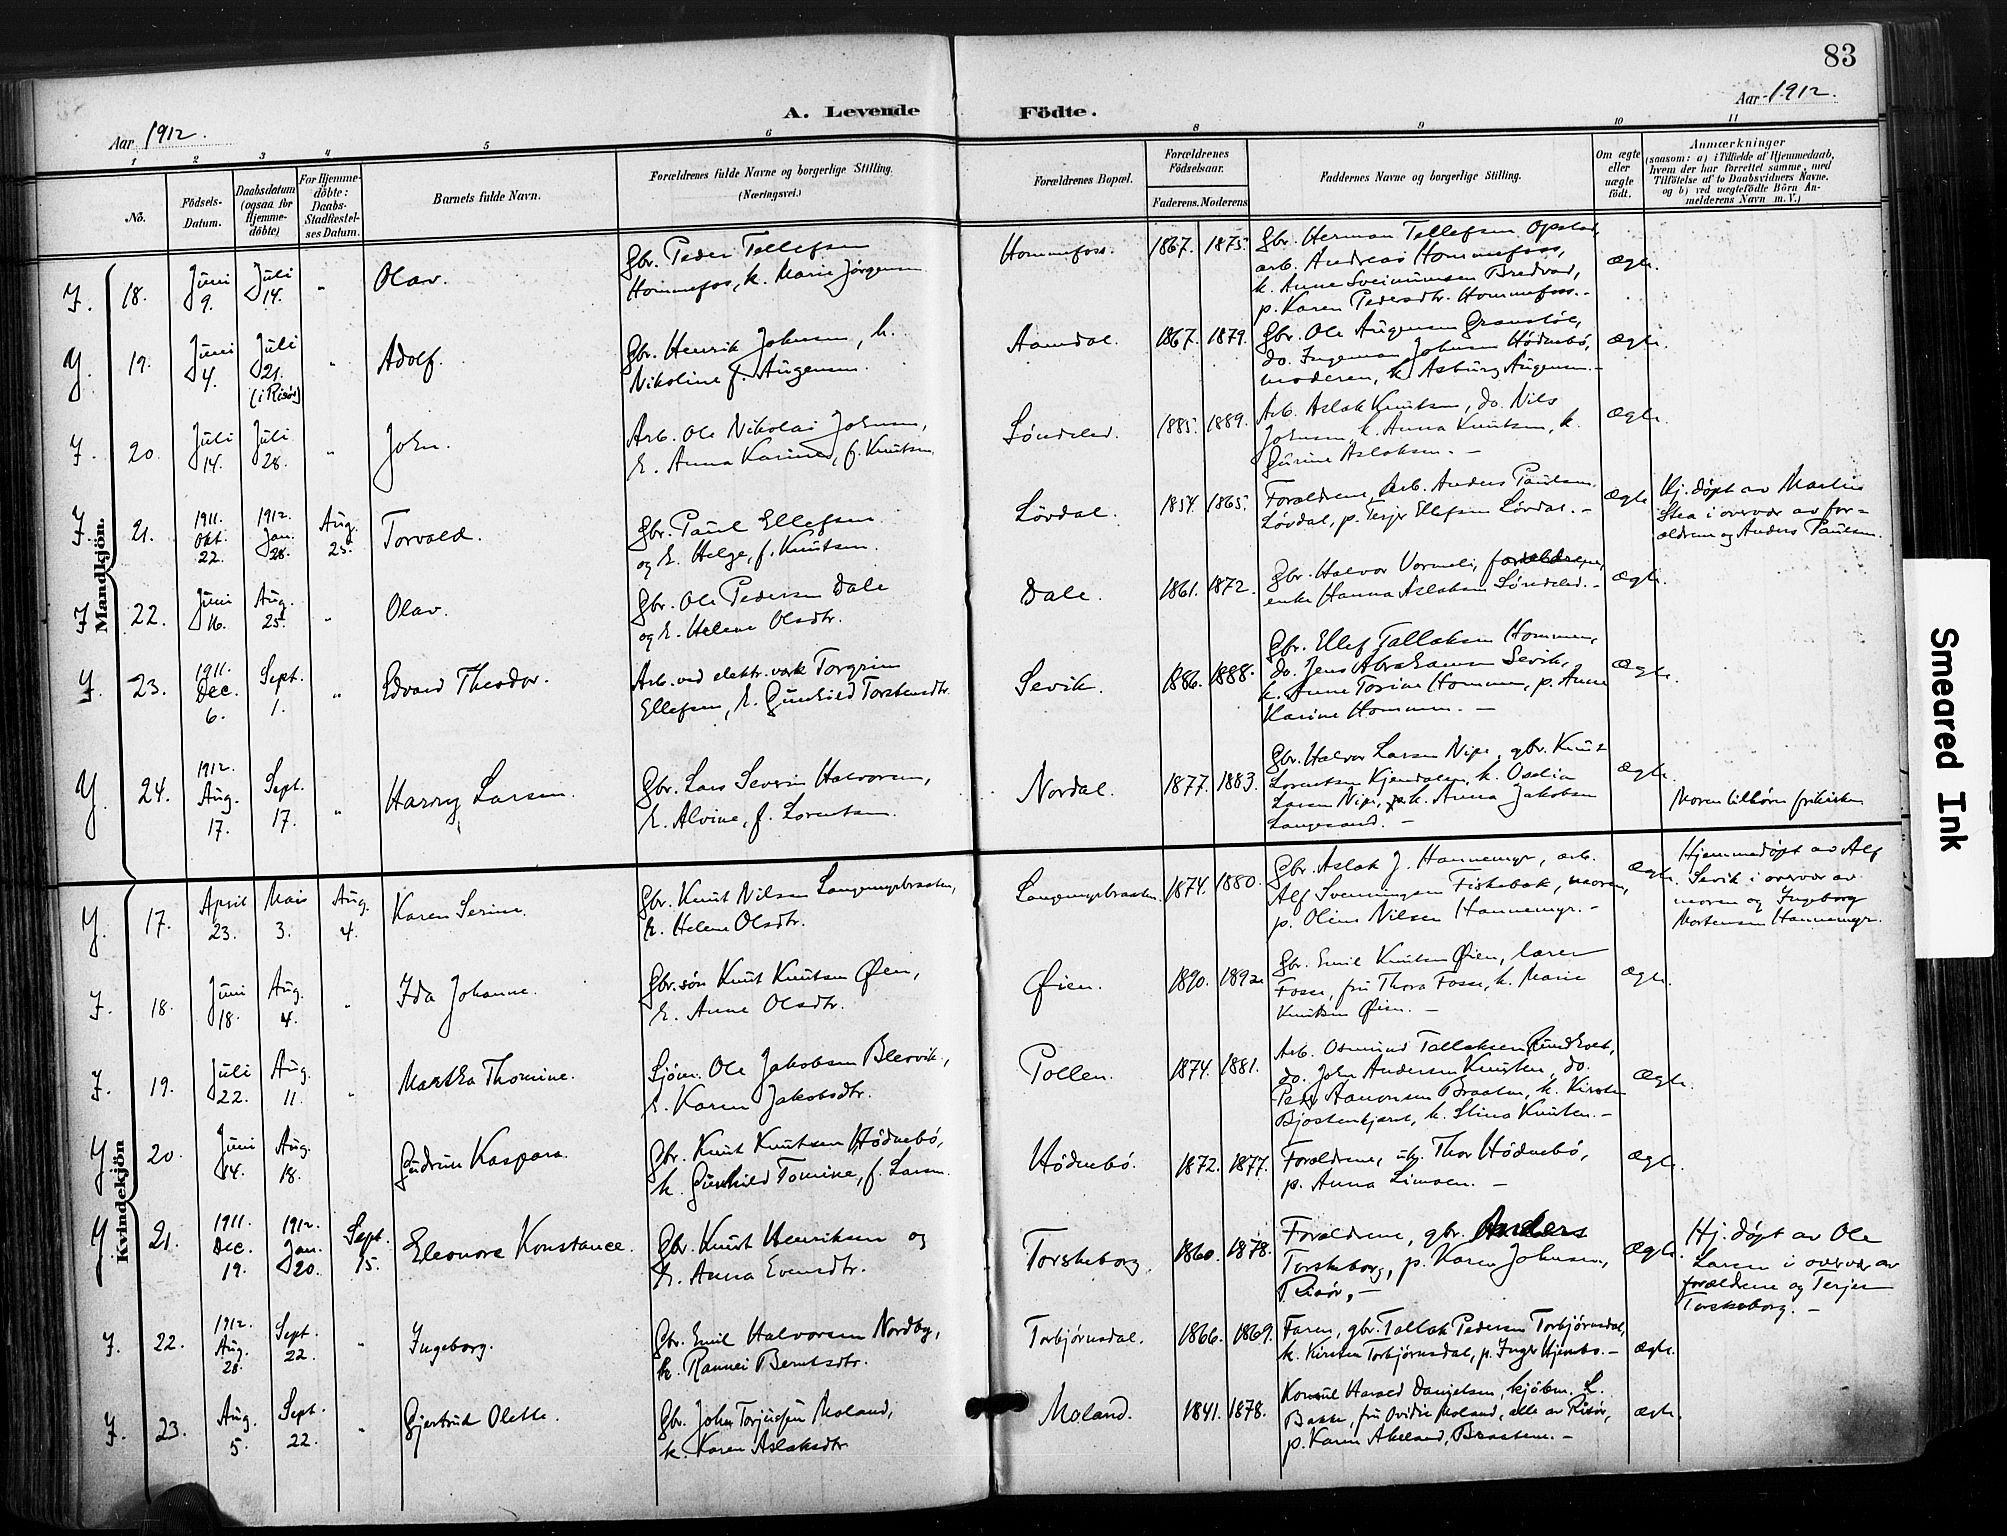 83
Aar 1912.
A. Levende Födte.
Aar 1912.
1 2 3 4 5 6 8 9 10 11
No.
Födsels-
Datum.
Daabsdatum
(ogsaa for
Hjemme-
döbte)
For Hjemme-
döbte:
Daabs-
Stadfæstel-
ses Datum.
Barnets fulde Navn.
Forældrenes fulde Navne og borgerlige Stilling.
(Næringsvei.)
Forældrenes Bopæl.
Forældrenes
Födselsaar.
Faderens. Moderens
Faddernes Navne og borgerlige Stilling.
Om ægte
eller
uægte
födt.
Anmærkninger
(saasom: a) i Tilfælde af Hjemmedaab,
hvem der har forrettet samme, med
Tilföielse af to Daabsvidners Navne,
og b) ved uegtefödte Börn An-
melderens Navn m. V.)
Mandkjön.
J. 18. Juni 9. Juli 14. " Olav.
Gbr. Peder Tellefsen
Hommefos, k. Marie Jørgensen
Hommefoss. 1867. 1875.
Gbr. Herman Tellefsen Opstad,
arb. Andreas Hommefoss,
k. Anne Sveinunsen Bredvad,
p. Karen Pedersdtr. Hommefoss.-
Ægte.
Y. 19. Juni 4. Juli 21. (i Risør) " Adolf.
Gbr. Henrik Johnsen, h.
Nikoline f. Augensen.
Aamdal. 1867. 1879.
Gbr. Ole Augensen Granstøl,
do. Ingeman Johnsen Hødnebø,
moderen, k. Asburg Augensen.-
Ægte.
J. 20. Juli 14. Juli 28. " John.
Arb. Ole Nikolai Johnsen,
h. Anna Karine, f. Knutsen
Søndeled. 1885. 1889.
Arb. Aslak Knutsen, do. Nils
Johnsen, k. Anna Knutsen, k.
Gurine Aslaksen. -
Ægte.
J. 21. 1911. Okt. 22. 1912. Jan. 28. Aug. 25. Torvald.
Gbr. Paul Ellefsen
og h. Helge, f. Knutsen.
Løvdal. 1854. 1865.
Forældrene, Arb. Anders Paulsen
Løvdal, p. Terjer Ellefsen Løvdal. -
Ægte
Hj. døpt av Martin
Stea i overvær av for-
ældrene og Anders Paulsen.
J. 22. Juni 16. Aug. 25. " Olav.
Gbr. Ole Pedersen Dale
og h. Helene Olsdtr.
Dale. 1861. 1872.
Gbr. Halvor Vormeli, forældrene,
enke Hanna Aslaksen Søndeled.-
Ægte.
Y. 23. 1911. Dec. 6. Sept. 1. " Edvard Theodor.
Arb. ved elektr. verk Torgrim
Ellefsen, h. Gunhild Torstensdtr.
Sevik. 1886. 1888.
Gbr. Ellef Tallaksen Hommen,
do. Jens Abrahamsen Sevik,
k. Anne Torine Hommen, p. Anne
Karine Hommen. -
Ægte.
Y. 24. 1912. Aug. 17. Sept. 17. " Harry Larsen.
Gbr. Lars Severin Halvorsen,
h. Alvine, f. Lorentsen.
Nordal. 1877. 1883.
Gbr. Halvor Larsen Nipe, gbr. Knut
Lorentsen Kjendalen, k. Oselia
Larsen Nipe, k. Anna Jakobsen
Langesand. -
Ægte.
Moren tilhører frikirken
Kvindekjön
Y. 17. April 23. Mais 3. Aug. 4. Karen Serine.
Gbr. Knut Nilsen Langemyrbraaten,
h. Helene Olsdtr.
Langemyrbraaten. 1874. 1880.
Gbr. Aslak J. Hannemyr, arb.
Alf Svenningsen Fiskebæk, moren,
p. Oline Nilsen Hannemyr. -
Ægte.
Hjemmedøpt av Alf
Sevik i overvær av
moren og Ingeborg
Mortensen Hannemyr.
J. 18. Juni 18. Aug. 4. " Ida Johanne.
Gbr.søn Knut Knutsen Øien,
h. Anne Olsdtr.
Øien. 1890. 1892
Gbr. Emil Knutsen Øien, lærer
Fosse, fru Thora Fosse, k. Marie
Knutsen Øien. -
Ægte.
J. 19. Juli 22. Aug. 11. " Martha Thomine.
Sjøm. Ole Jakobsen Blesvik,
h. Karen Jakobsdtr.
Pollen. 1874. 1881.
Arb. Osmund Tallaksen Rundholt,
do. John Andersen Knuten, do.
Peder Aanonsen Braaten, k. Kirsten
Bjostenkjern, k. Stina Knuten.-
Ægte.
Y 20. Juni 14. Aug. 18. Gudrun Kaspara.
Gbr. Knut Knutsen Hødnebø,
k. Gunhild Tomine, f. Larsen.
Hødnebø. 1872. 1877.
Forældrene, Thor Hødnebø,
p. Anna Limoen. -
Ægte.
Y 21. 1911. Dec. 19. 1912. Jan. 20. Sept. 15. Eleonore Konstance.
Gbr. Knut Henriksen og
h. Anna Evensdtr.
Torskeborg. 1860. 1878.
Forældrene, gbr. Anders
Torskeborg, p. Karen Johnsen,
Risør, -
Ægte.
Hj. døpt av Ole
Larsen i overvær av
forældrene og Terjer
Torskeborg. -
J. 22. 1912. Aug. 28. Sept. 22. " Ingeborg.
Gbr. Emil Halvorsen Nordby,
k. Rannei Berntsdtr.
Torbjørnsdal. 1866. 1869.
Faren, gbr. Tallak Pedersen Torbjørnsdal,
k. Kirsten Torbjørnsdal, p. Inger Hjembo. -
Ægte.
J. 23. Aug. 5. Sept. 22. " Gjertrud Olette.
Gbr. John Torjusen Moland,
k. Karen Aslaksdtr
Moland. 1841. 1878.
Konsul Harald Danielsen, kjøbm. L.
Bakke, fru Ovidie Moland, alle av Risør,
p. Karen Akeland, Braaten. -
Ægte.
Smeared Ink